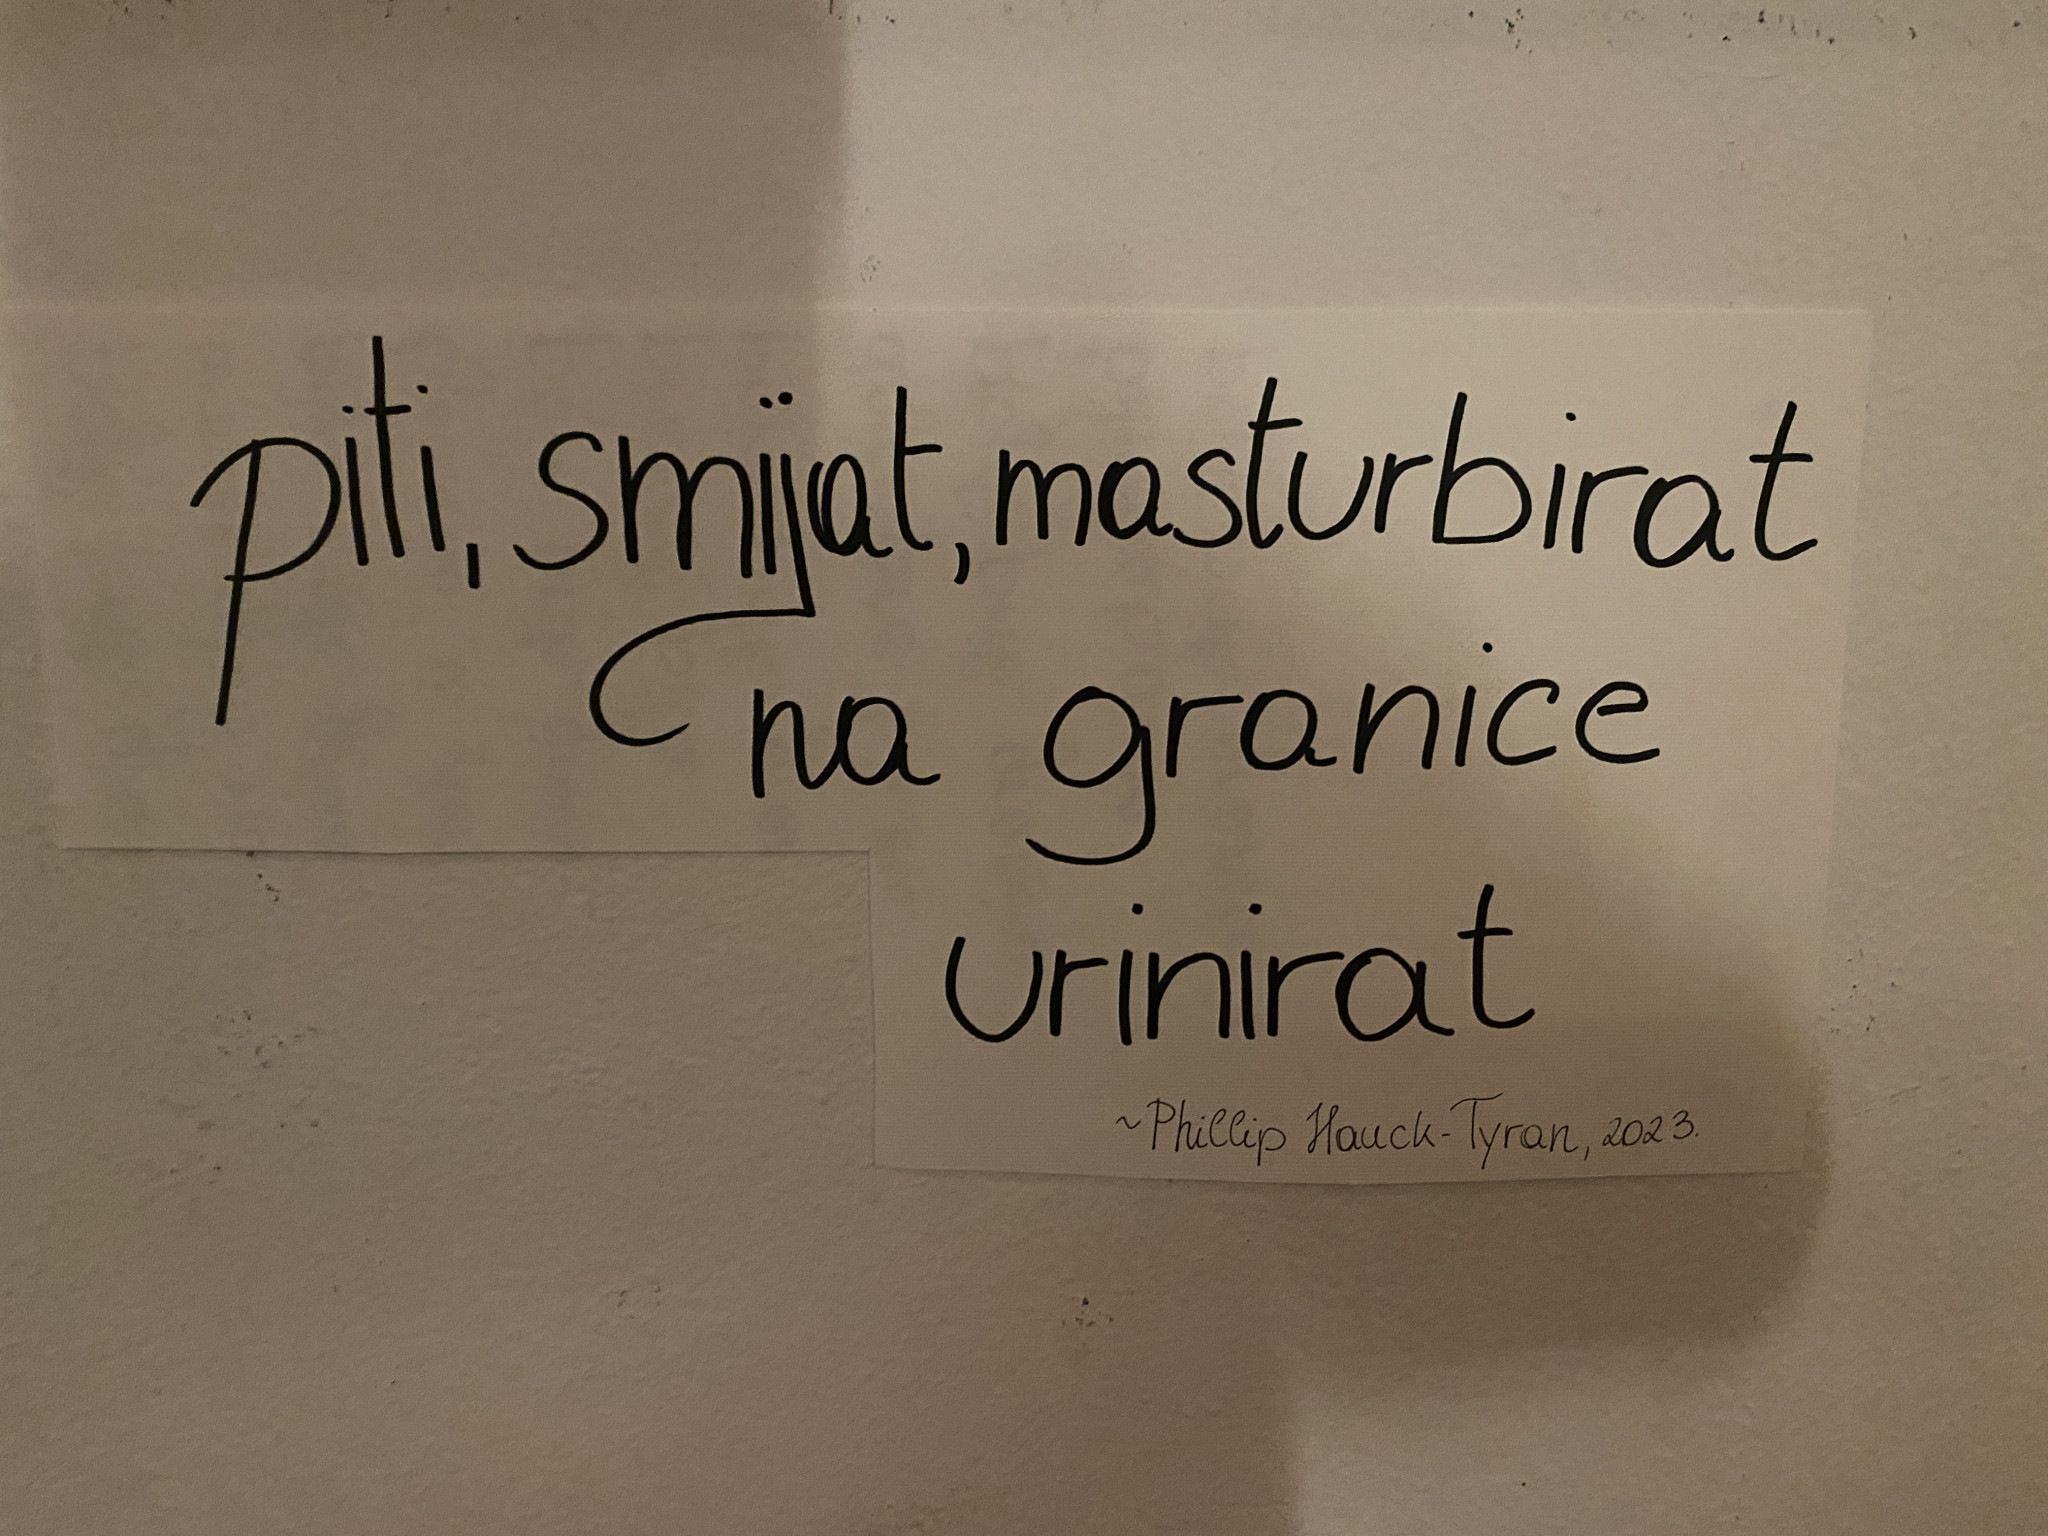 piti, smijat, masturbirat
na granice
urinirat
~Phillip Hauck-Tyran, 2023.